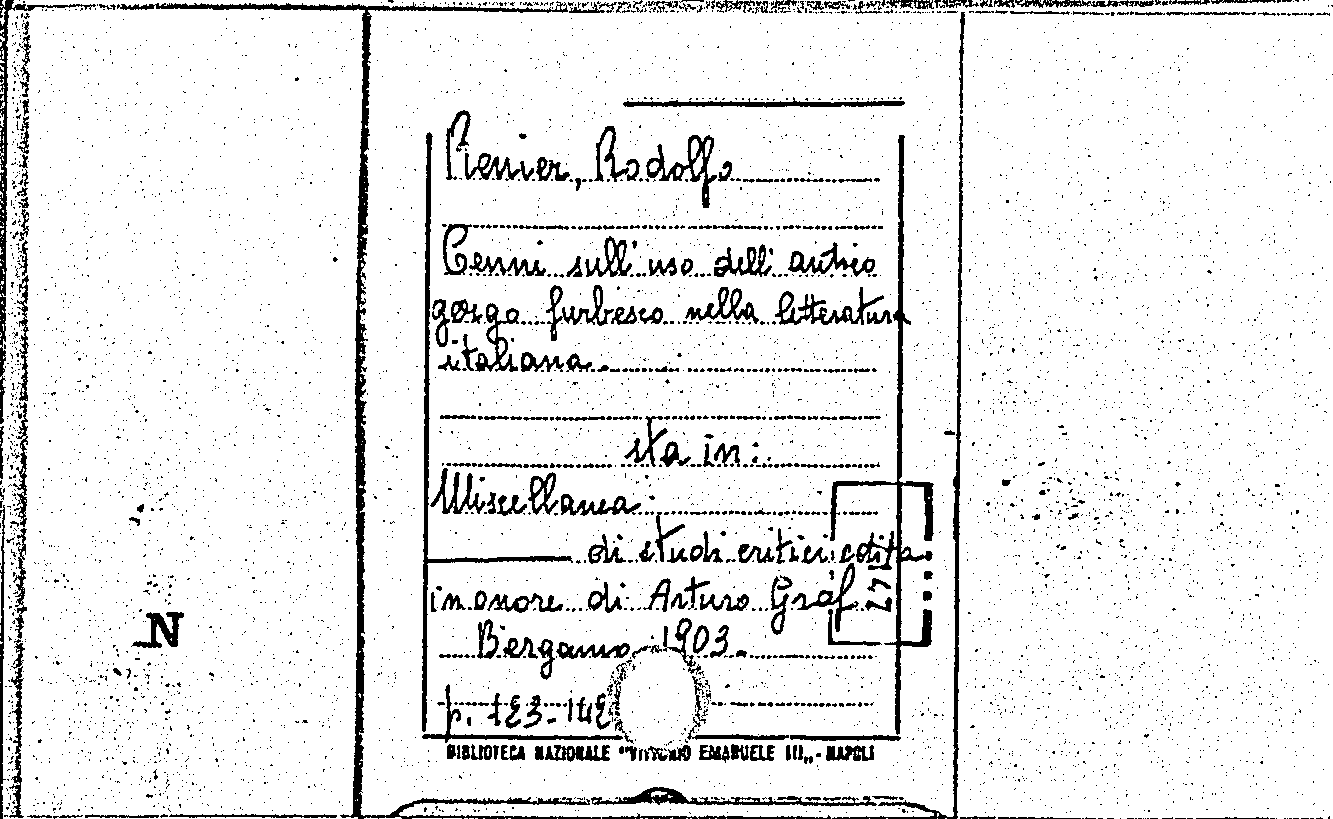 Renier, Rodolfo
Cenni sull'uso dell'antico
gergo furbesco nella letteratura
italiana.
sta in:
Miscellanea
di studi critici edita
in onore di Arturo Graf
Bergamo 1903.
p. 123-142
N
BIBLIOTECA NAZIONALE "VITTORIO EMANUELE III„ - NAPOLI